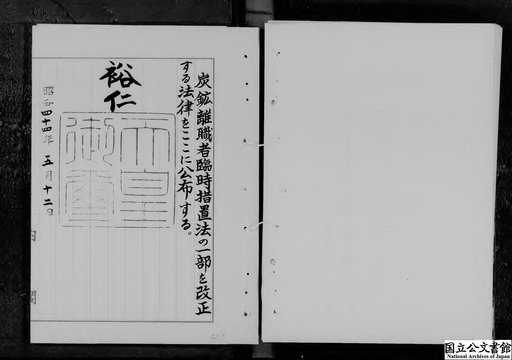 炭鉱離職者臨時措置法の一部を改正
する法律をここに公布する。
裕仁
天皇御璽
昭和四十四年五月十二日
内閣
国立公文書館
National Archives of Japan